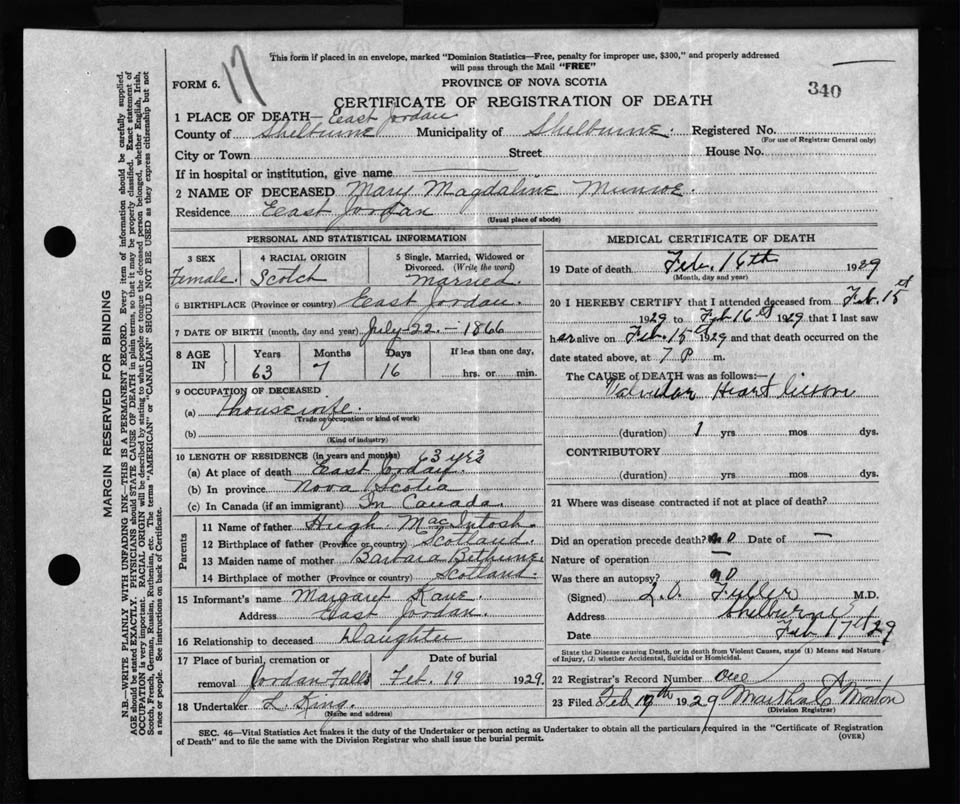 This form if placed in an envelope, marked "Dominion Statistics—Free, penalty for improper use, $300," and properly addressed
will pass through the Mail "FREE"
17
FORM 6.
PROVINCE OF NOVA SCOTIA
340
CERTIFICATE OF REGISTRATION OF DEATH
1 PLACE OF DEATH— East Jordan
County of Shelburne Municipality of Shelburne. Registered No.
(For use of Registrar General only)
City or Town Street House No.
If in hospital or institution, give name
2 NAME OF DECEASED Mary Magdaline Munroe.
Residence East Jordan
(Usual place of abode)
PERSONAL AND STATISTICAL INFORMATION
3 SEX 4 RACIAL ORIGIN 5 Single, Married, Widowed or
Divorced. (Write the word)
Female. Scotch Married.
6 BIRTHPLACE (Province or country) East Jordan.
7 DATE OF BIRTH (month, day and year) July 22.- 1866
8 AGE IN Years Months Days If less than one day,
63 7 16 hrs. or min.
9 OCCUPATION OF DECEASED
(a) housewife.
(Trade or occupation or kind of work)
(b)
(Kind of industry)
10 LENGTH OF RESIDENCE (in years and months) 63 yrs
(a) At place of death East Jordan.
(b) In province Nova Scotia
(c) In Canada (if an immigrant) In Canada.
Parents
11 Name of father Hugh MacIntosh.
12 Birthplace of father (Province or country) Scotland.
13 Maiden name of mother Barbara Bethune.
14 Birthplace of mother (Province or country) Scotland.
15 Informant's name Margaret Kane.
Address East Jordan.
16 Relationship to deceased Daughter
17 Place of burial, cremation or Date of burial
removal Jordan Falls Feb. 19 1929.
18 Undertaker L. King.
(Name and address)
MEDICAL CERTIFICATE OF DEATH
19 Date of death Feb. 16th 1929
(Month, day and year)
20 I HEREBY CERTIFY that I attended deceased from Feb. 15th
1929 to Feb 16th 1929 that I last saw
her alive on Feb. 15th 1929 and that death occurred on the
date stated above, at 7 P m.
The CAUSE of DEATH was as follows:—
Valvular Heart lesion
(duration) 1 yrs mos dys.
CONTRIBUTORY
(duration) yrs mos dys.
21 Where was disease contracted if not at place of death?
Did an operation precede death? no Date of —
Nature of operation —
Was there an autopsy? no
(Signed) L.O. Fuller M.D.
Address Shelburne
Date Feb 17th/29
State the Disease causing Death, or in death from Violent Causes, state (1) Means and Nature
of Injury, (2) whether Accidental, Suicidal or Homicidal.
22 Registrar's Record Number one
23 Filed Feb 19th 1929 Martha A Morton
(Division Registrar)
SEC. 46—Vital Statistics Act makes it duty of the Undertaker or person acting as Undertaker to obtain all the particulars required in the "Certificate of Registration
of Death" and to file the same with the Division Registrar who shall issue the burial permit.
(OVER)
MARGIN RESERVED FOR BINDING
N.B.—WRITE PLAINLY WITH UNFADING INK—THIS IS A PERMANENT RECORD. Every item of information should be carefully supplied.
AGE should be stated EXACTLY. PHYSICIANS should STATE CAUSE OF DEATH in plain terms, so that it may be properly classified. Exact statement of
OCCUPATION is very important. RACIAL ORIGIN will be described by stating to what people or tongue the deceased person belonged, whether English, Irish,
Scotch, French, German, Russian, Ruthenian, etc. The terms "AMERICAN" or "CANADIAN" SHOULD NOT BE USED as they express citizenship but not
a race or people. See instructions on back of Certificate.